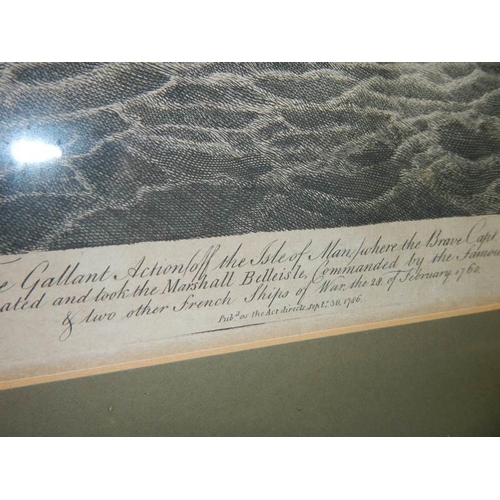 e Gallant Action (off the Isle of Man) where the Brave Capt
ated and took the Marshall Belleisle, Commanded by the Famou
& two other French Ships of War, the 28. of February 1760.
Pub.d as the Act directs, Sept.r 30, 1786.